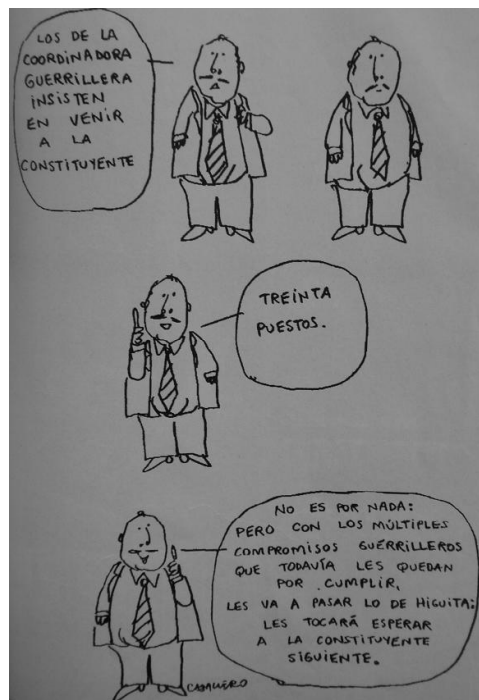 LOS DE LA
COORDINADORA
GUERRILLERA
INSISTEN
EN VENIR
A LA
CONSTITUYENTE
TREINTA
PUESTOS.
NO ES POR NADA:
PERO CON LOS MÚLTIPLES
COMPROMISOS GUERRILLEROS
QUE TODAVÍA LES QUEDAN
POR CUMPLIR,
LES VA A PASAR LO DE HIGUITA:
LES TOCARÁ ESPERAR
A LA CONSTITUYENTE
SIGUIENTE.
CABALLERO